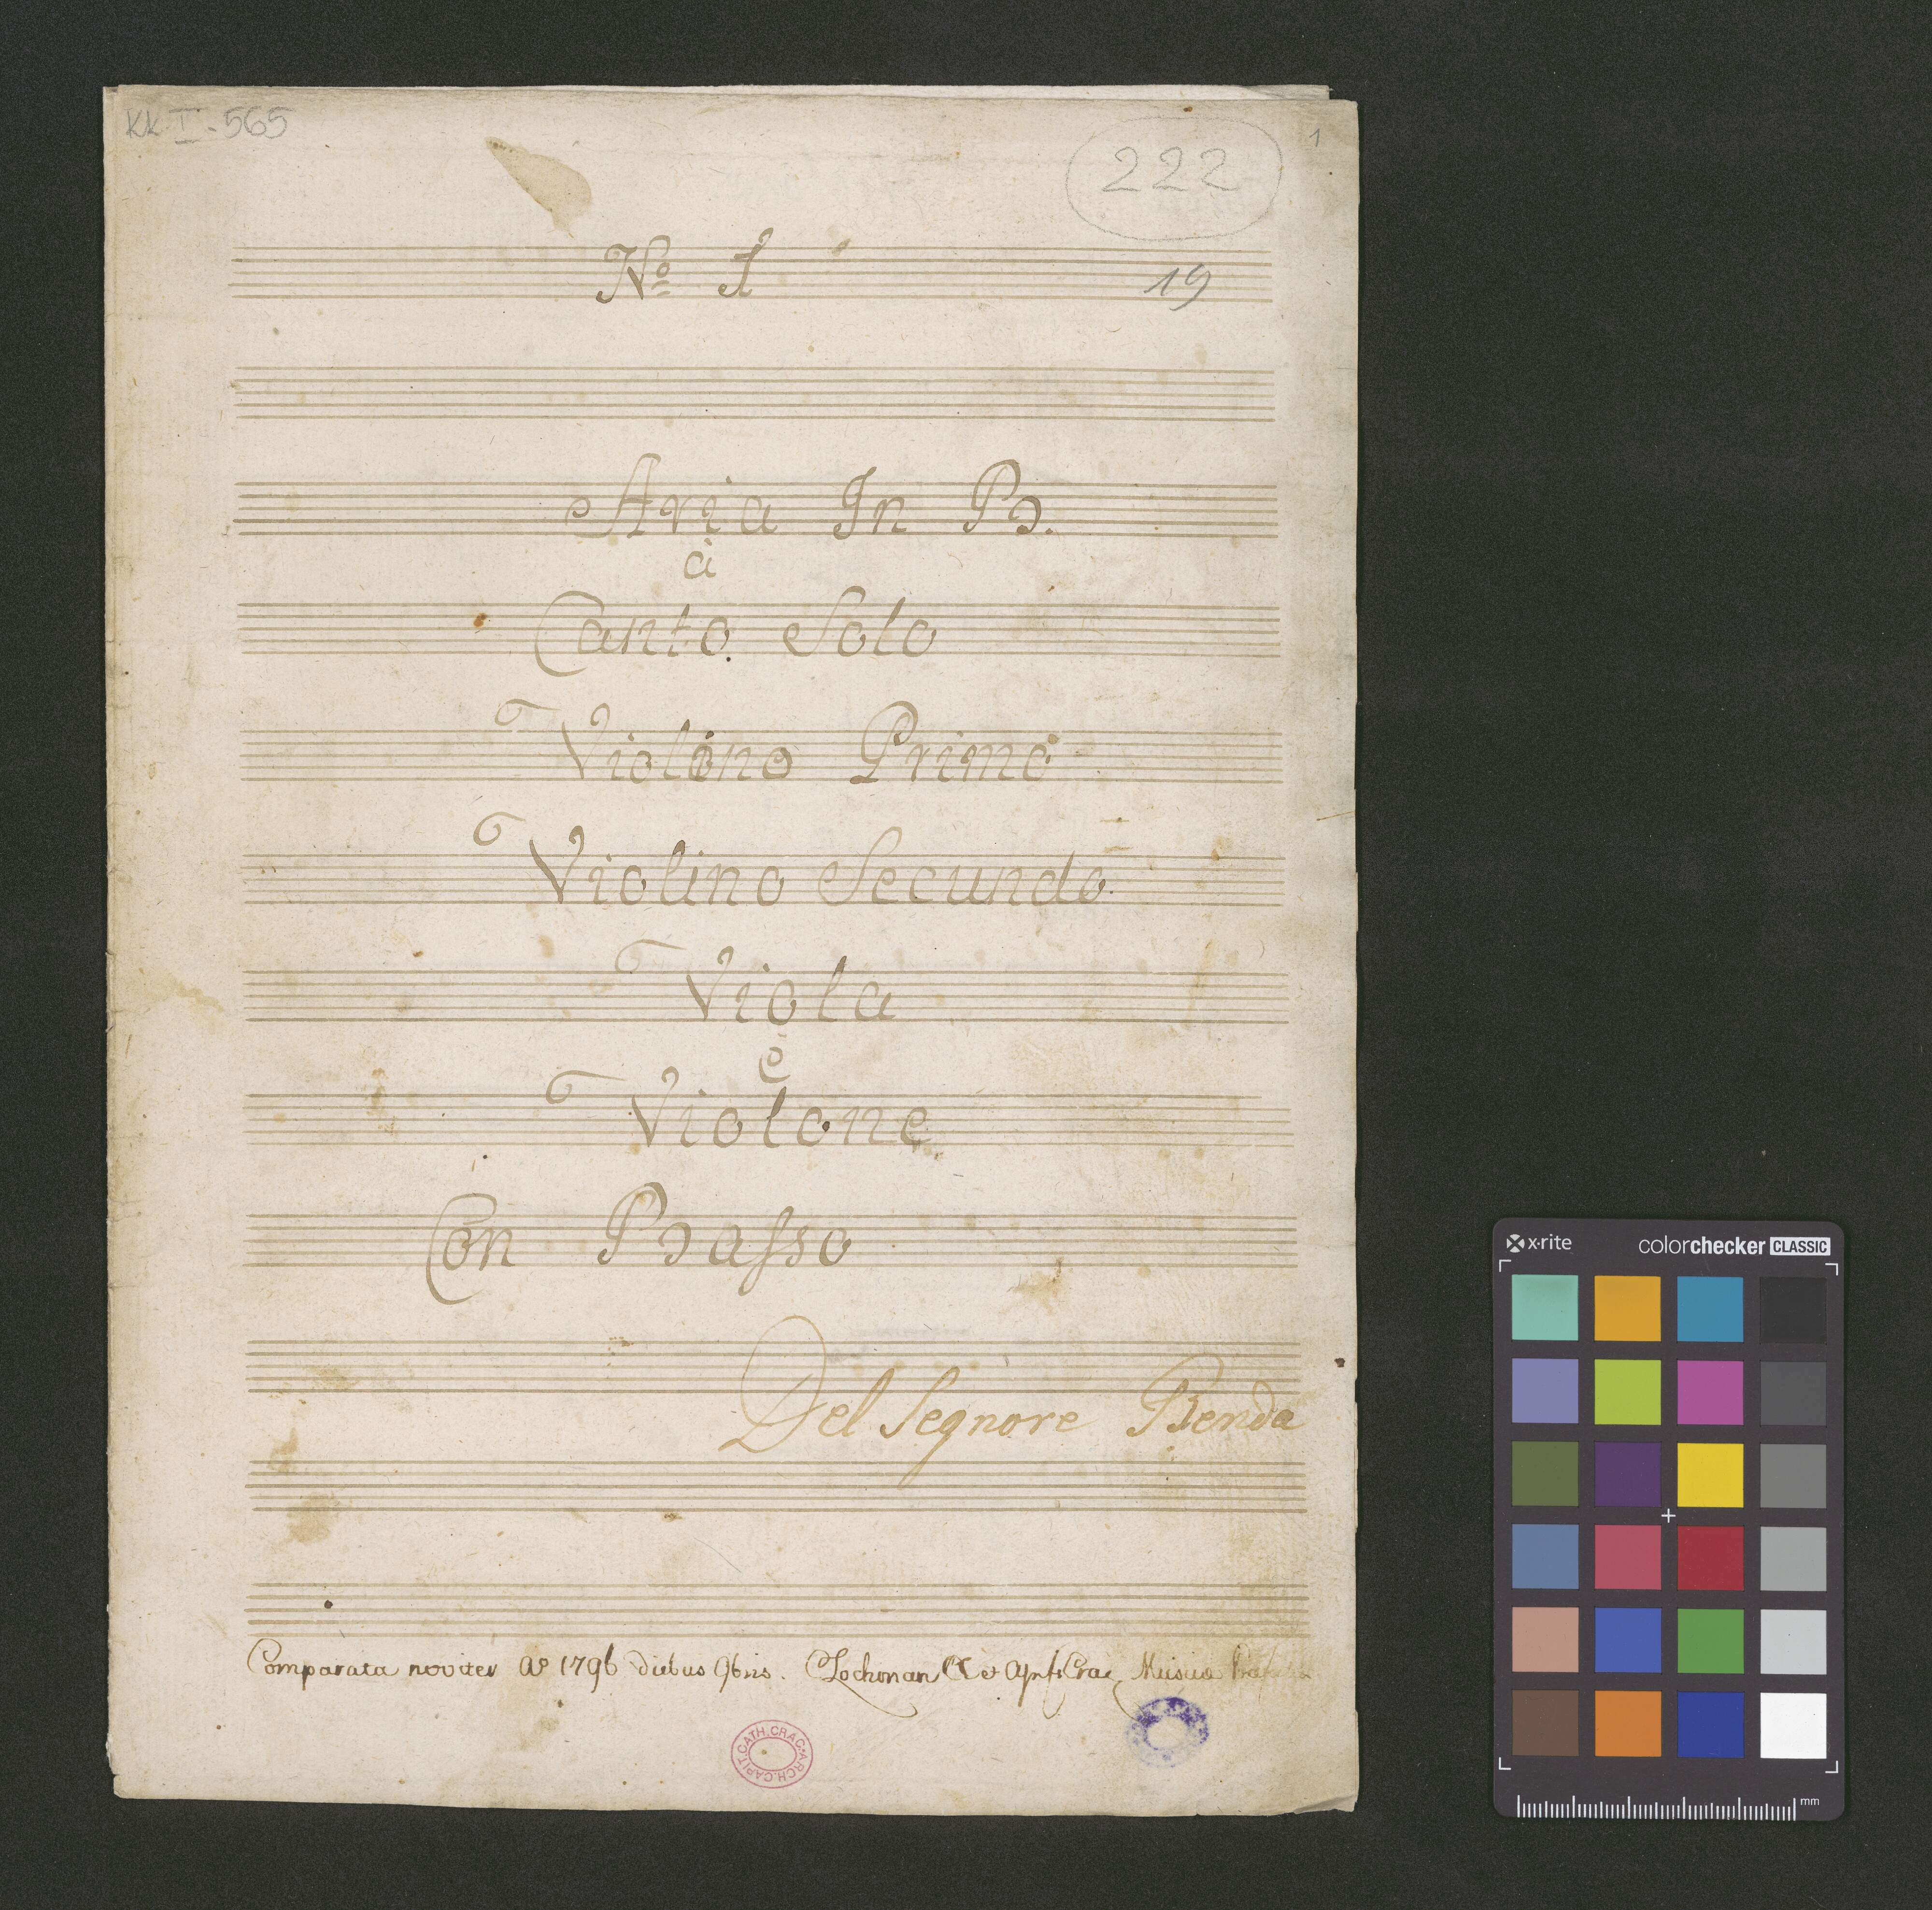 KK I-565
222
1
Nº 1
19
Aria In B.
à
Canto Solo
Violino Primo
Violino Secundo
Viola
e
Violone
Con Basso
Del Segnore Benda
Comparata noviter Aº 1796 diebus 9bris. Musica
CAPIT.CATH.CRAC.ARCH.
x·rite colorchecker CLASSIC
mm